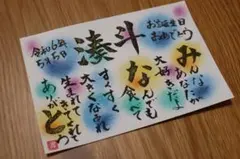 お誕生日
おめでとう
湊斗
みんなが
あなたが
大好きだよ
なんでも
食べて
すくすく
大きくなあれ
生まれて
きてくれて
ありがとう
令和6年
5月5日